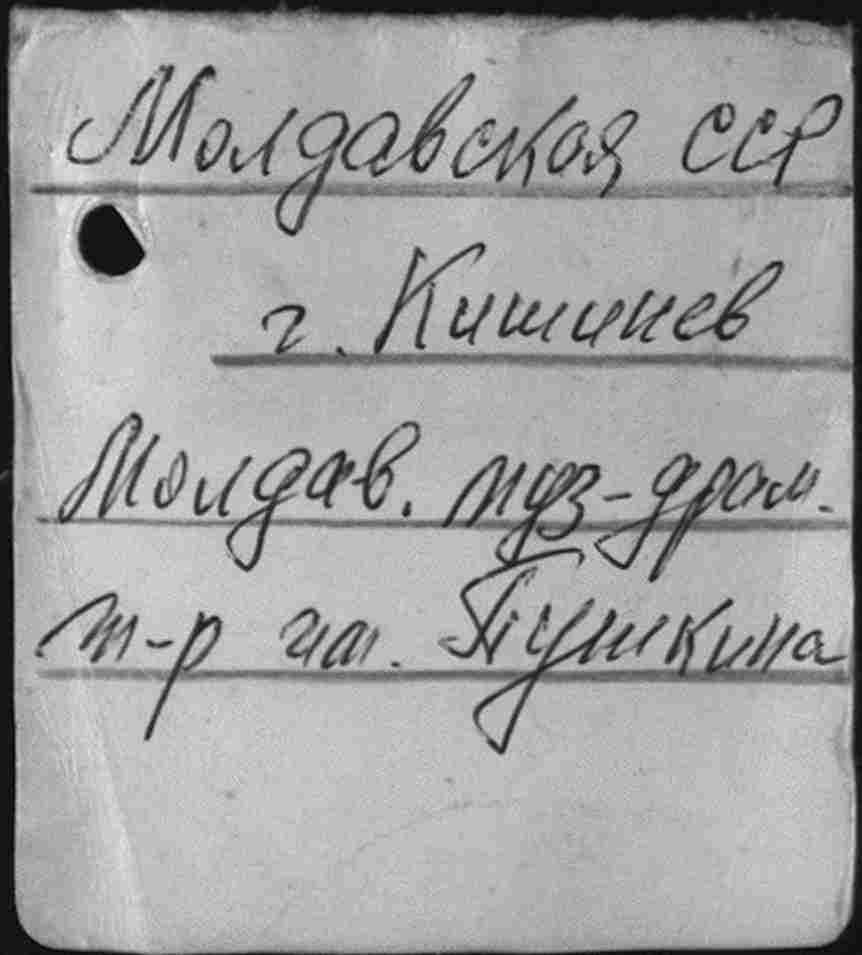 Молдавская ССР
г. Кишинев
Молдав. муз-драм.
т-р им. Пушкина